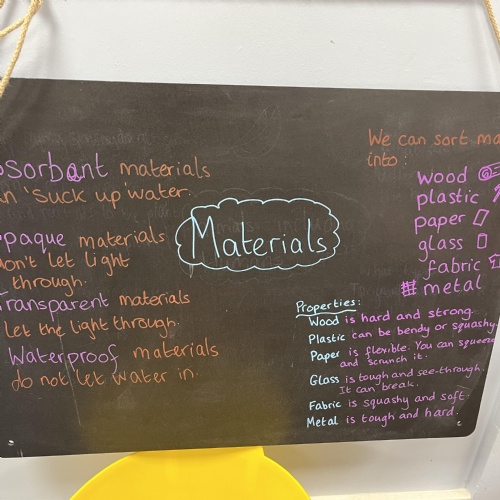 sorbant materials
n 'suck up' water.
paque materials
don't let light
through.
Transparent materials
let the light through.
Waterproof materials
do not let water in.
Materials
We can sort ma
into:
wood
plastic
paper
glass
fabric
metal
Properties:
Wood is hard and strong.
Plastic can be bendy or squashy
Paper is flexible. You can squeeze
and scrunch it.
Glass is tough and see-through.
It can break.
Fabric is squashy and soft.
Metal is tough and hard.